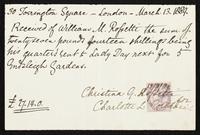 30 Torrington Square - London - March 13. 1884.
Received of William M. Rossetti the sum of
twenty seven pounds fourteen shillings being
his quarter's rent to Lady Day next for 5
Endsleigh Gardens.
Christina G. Rossetti
£27.14.0. Charlotte L.